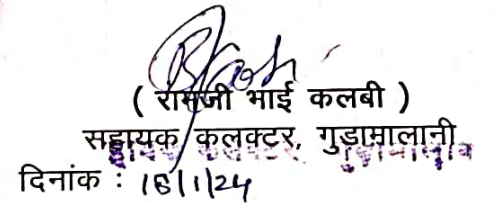 ( रामजी भाई कलबी )
सहायक कलक्टर, गुडामालानी
दिनांक : 18/1/24